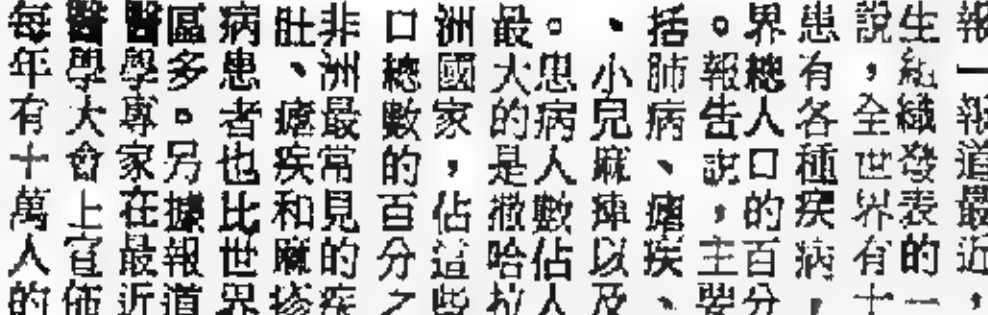 報一報道最近，
生組織發表的一
說，全世界有十
患有各種疾病，
界總人口的百分
。報告說，主要
括肺病、瘧疾、
、小兒麻痺以及
。患病人數佔人
最大的是撒哈拉
洲國家，佔這些
口總數的百分之
非洲最常見的疾
肚、瘧疾和麻疹
病患者也比世界
區多。另據報道
醫學專家在最近
醫學大會上宣佈
每年有十萬人的